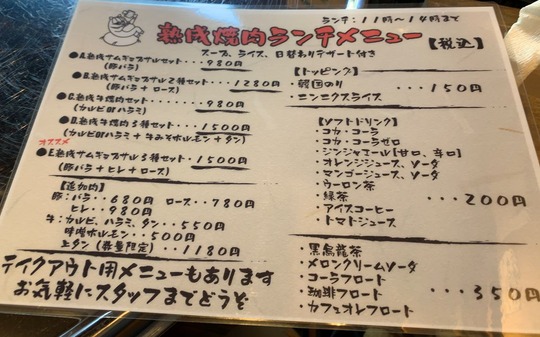 ランチ：11時～14時まで
熟成焼肉ランチメニュー【税込】
スープ、ライス、日替わりデザート付き
●A.熟成サムギョプサルセット・・・980円
(豚バラ)
●B.熟成サムギョプサル2種セット・・・1280円
(豚バラ + ロース)
●C.熟成牛焼肉セット・・・・・980円
(カルビorハラミ)
●D.熟成牛焼肉3種セット・・・1500円
(カルビorハラミ + 牛みそホルモン + タン)
オススメ
●E.熟成サムギョプサル3種セット・・1500円
(豚バラ + ヒレ + ロース)
【追加肉】
豚：バラ・・680円 ロース・・780円
ヒレ・・980円
牛：カルビ、ハラミ、タン・・550円
味噌ホルモン・・500円
上タン(数量限定)・・1180円
テイクアウト用メニューもあります
お気軽にスタッフまでどうぞ
【トッピング】
・韓国のり
・ニンニクスライス
・・150円
【ソフトドリンク】
・コカ・コーラ
・コカ・コーラゼロ
・ジンジャエール[甘口、辛口]
・オレンジジュース、ソーダ
・マンゴージュース、ソーダ
・ウーロン茶
・緑茶
・アイスコーヒー
・トマトジュース
・・200円
・黒烏龍茶
・メロンクリームソーダ
・コーラフロート
・珈琲フロート
・カフェオレフロート
・・350円